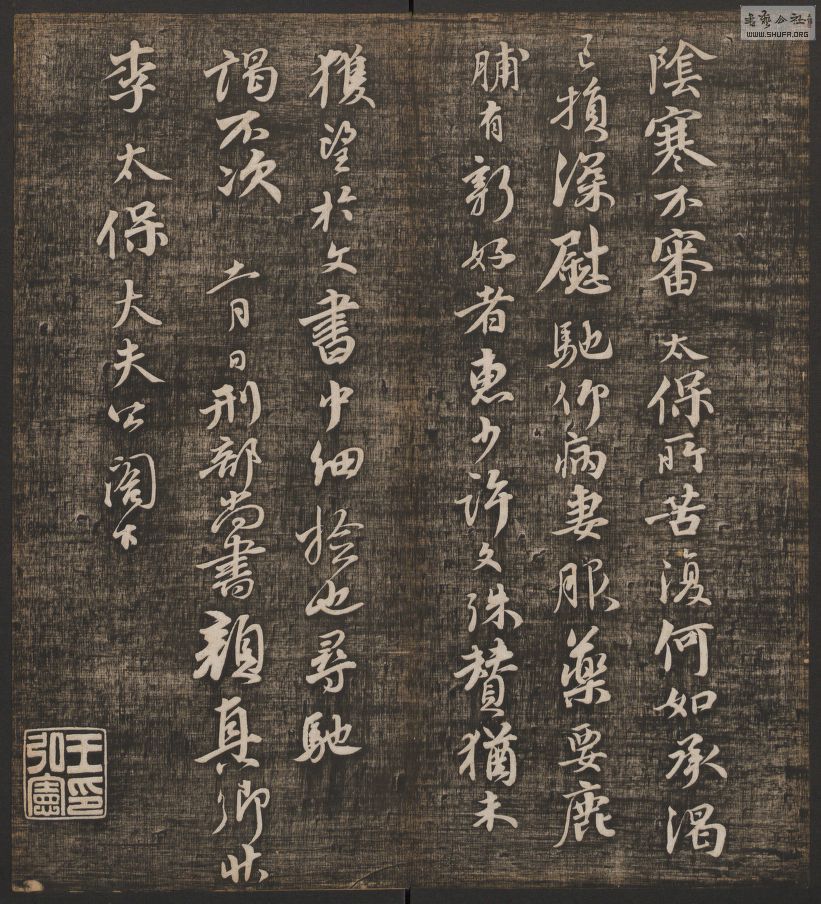 陰寒不審太保所苦復何如承渴
已損深慰馳仰病妻服藥要鹿
脯有新好者惠少許文殊贊猶未
獲望於文書中細撿也尋馳
謁不次 十一月日刑部尚書顏真卿狀
李太保大夫公閤下
王弘憲印
書藝公社
WWW.SHUFA.ORG